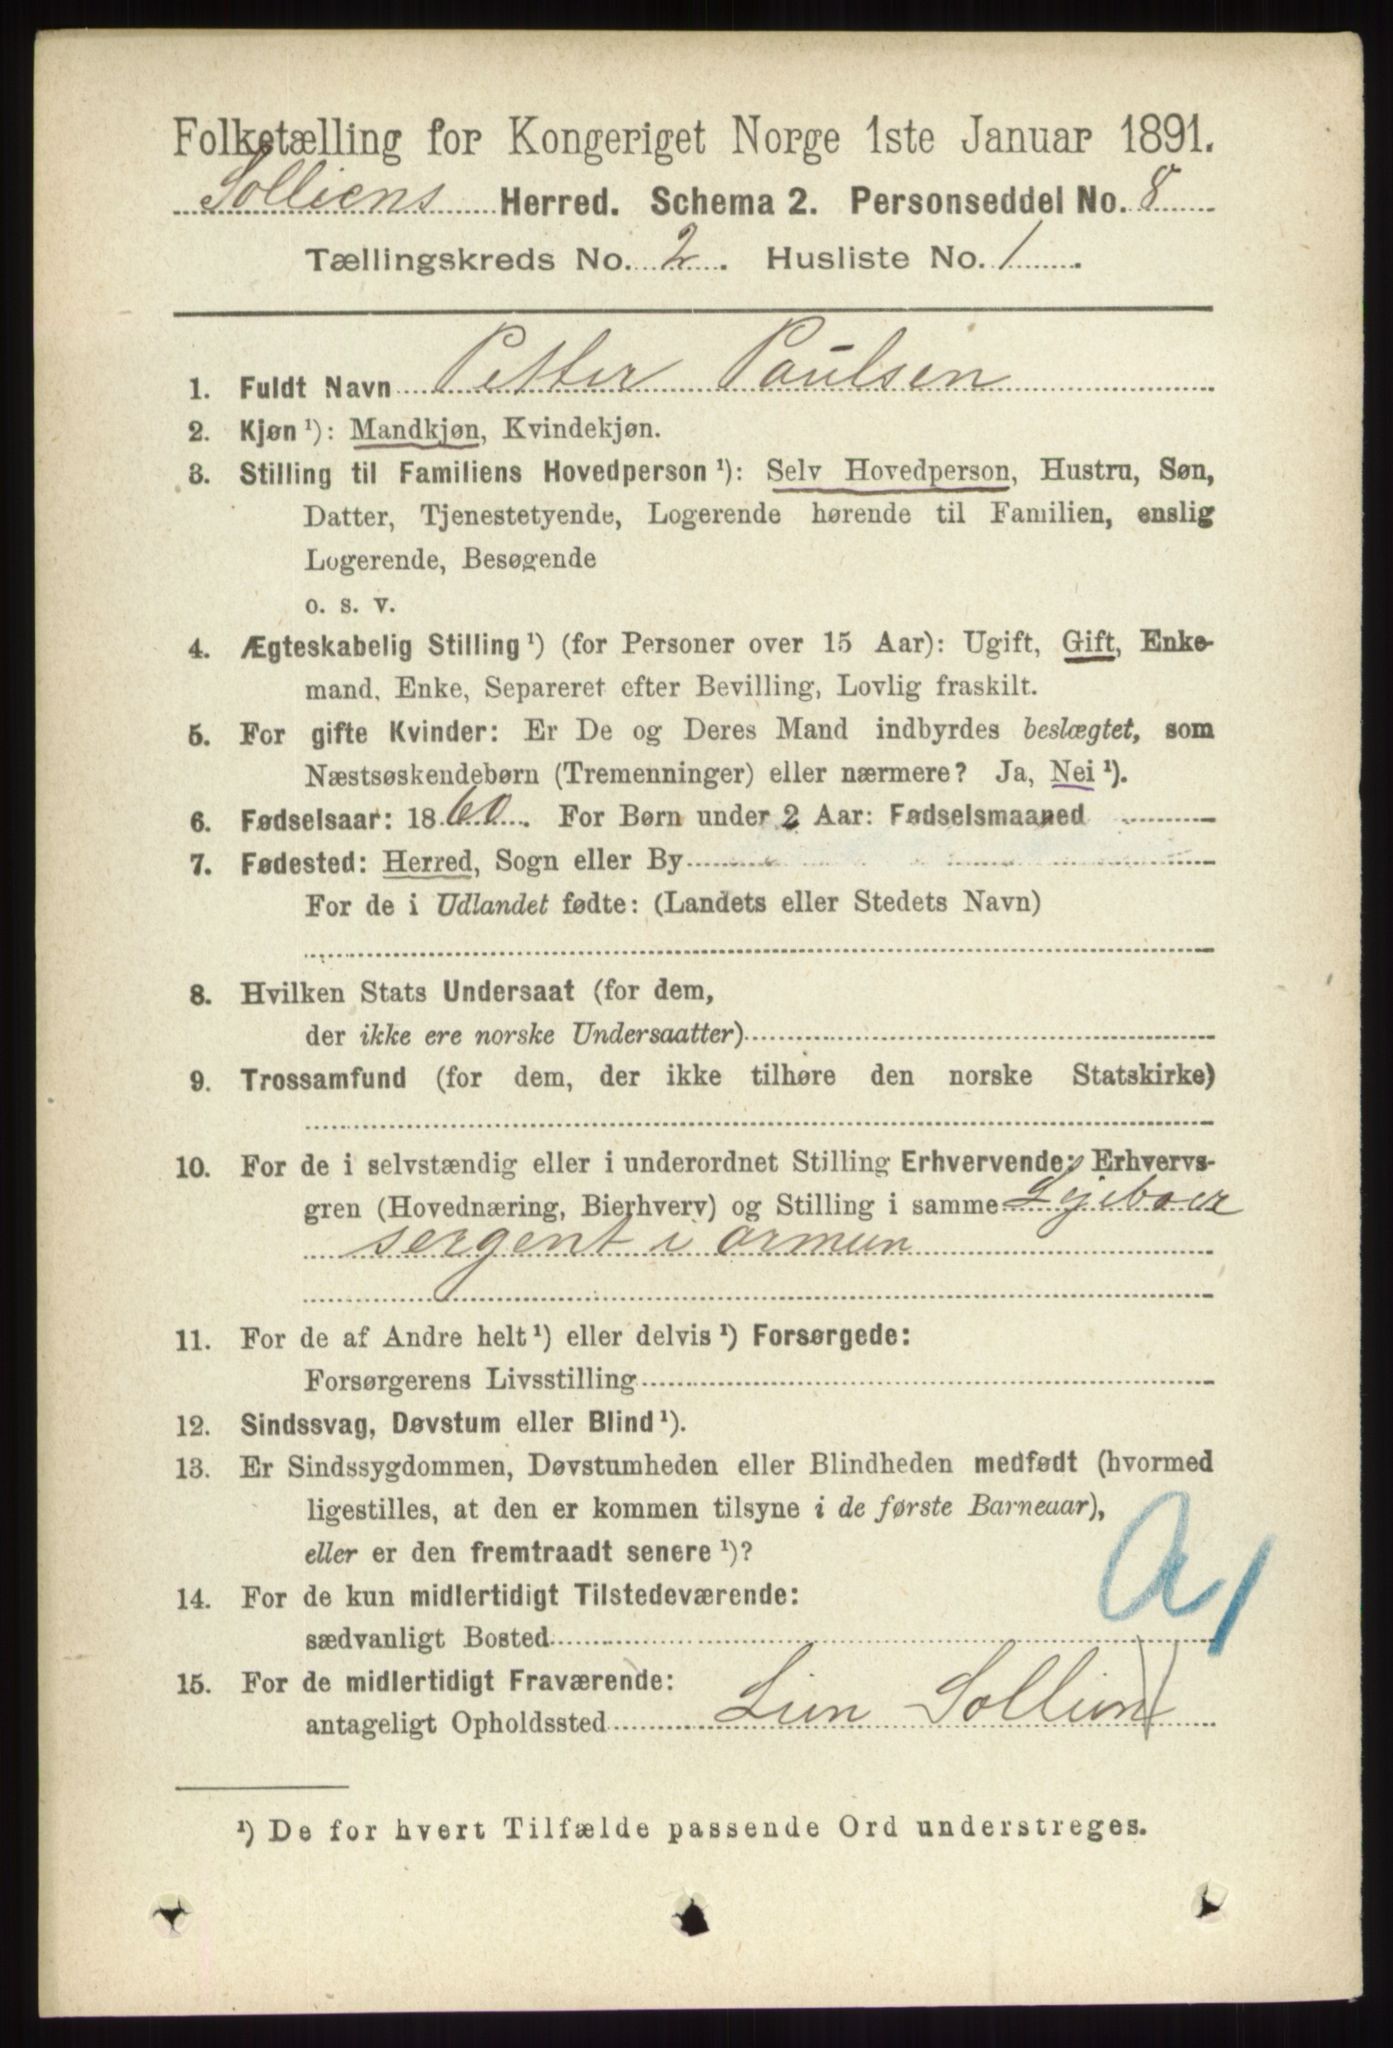 Folketælling for Kongeriget Norge 1ste Januar 1891.
Solliens Herred. Schema 2. Personseddel No. 8
Tællingskreds No. 2. Husliste No. 1.
1. Fuldt Navn Petter Paulsen
2. Kjøn ¹): Mandkjøn, Kvindekjøn.
3. Stilling til Familiens Hovedperson ¹): Selv Hovedperson, Hustru, Søn,
Datter, Tjenestetyende, Logerende hørende til Familien, enslig
Logerende, Besøgende
o. s. v.
4. Ægteskabelig Stilling ¹) (for Personer over 15 Aar): Ugift, Gift, Enke-
mand, Enke, Separeret efter Bevilling, Lovlig fraskilt.
5. For gifte Kvinder: Er De og Deres Mand indbyrdes beslægtet, som
Næstsøskendebørn (Tremenninger) eller nærmere? Ja, Nei ¹).
6. Fødselsaar: 1860. For Børn under 2 Aar: Fødselsmaaned
7. Fødested: Herred, Sogn eller By
For de i Udlandet fødte: (Landets eller Stedets Navn)
8. Hvilken Stats Undersaat (for dem,
der ikke ere norske Undersaatter)
9. Trossamfund (for dem, der ikke tilhøre den norske Statskirke)
10. For de i selvstændig eller i underordnet Stilling Erhvervende: Erhvervs-
gren (Hovednæring, Bierhverv) og Stilling i samme Lejeboer
sergent i armeen
11. For de af Andre helt ¹) eller delvis ¹) Forsørgede:
Forsørgerens Livsstilling
12. Sindssvag, Døvstum eller Blind ¹).
13. Er Sindssygdommen, Døvstumheden eller Blindheden medfødt (hvormed
ligestilles, at den er kommen tilsyne i de første Barneaar),
eller er den fremtraadt senere ¹)?
A1
14. For de kun midlertidigt Tilstedeværende:
sædvanligt Bosted
15. For de midlertidigt Fraværende:
antageligt Opholdssted Lien Sollien
¹) De for hvert Tilfælde passende Ord understreges.